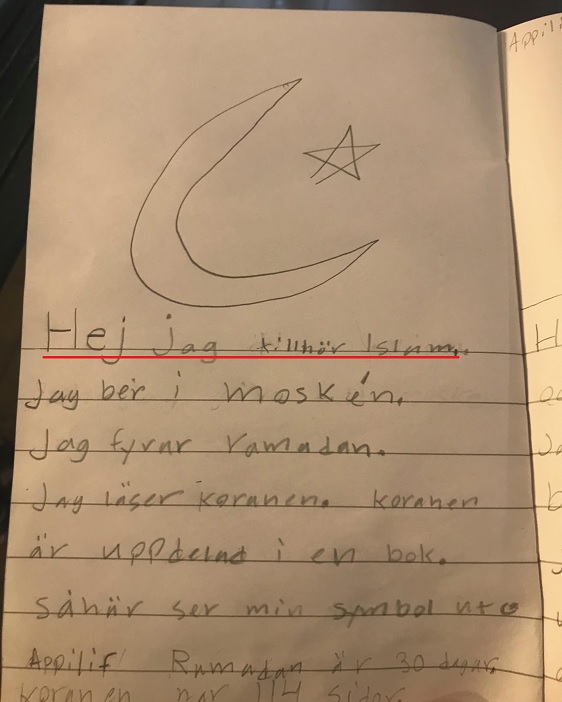 Appili
Hej jag tillhör Islam.
Jag ber i moskén.
Jag fyrar ramadan.
Jag läser koranen. koranen
är uppdelad i en bok.
såhär ser min symbol ut
Appilif Ramadan är 30 dagar.
koranen har 114 sidor.
H
b